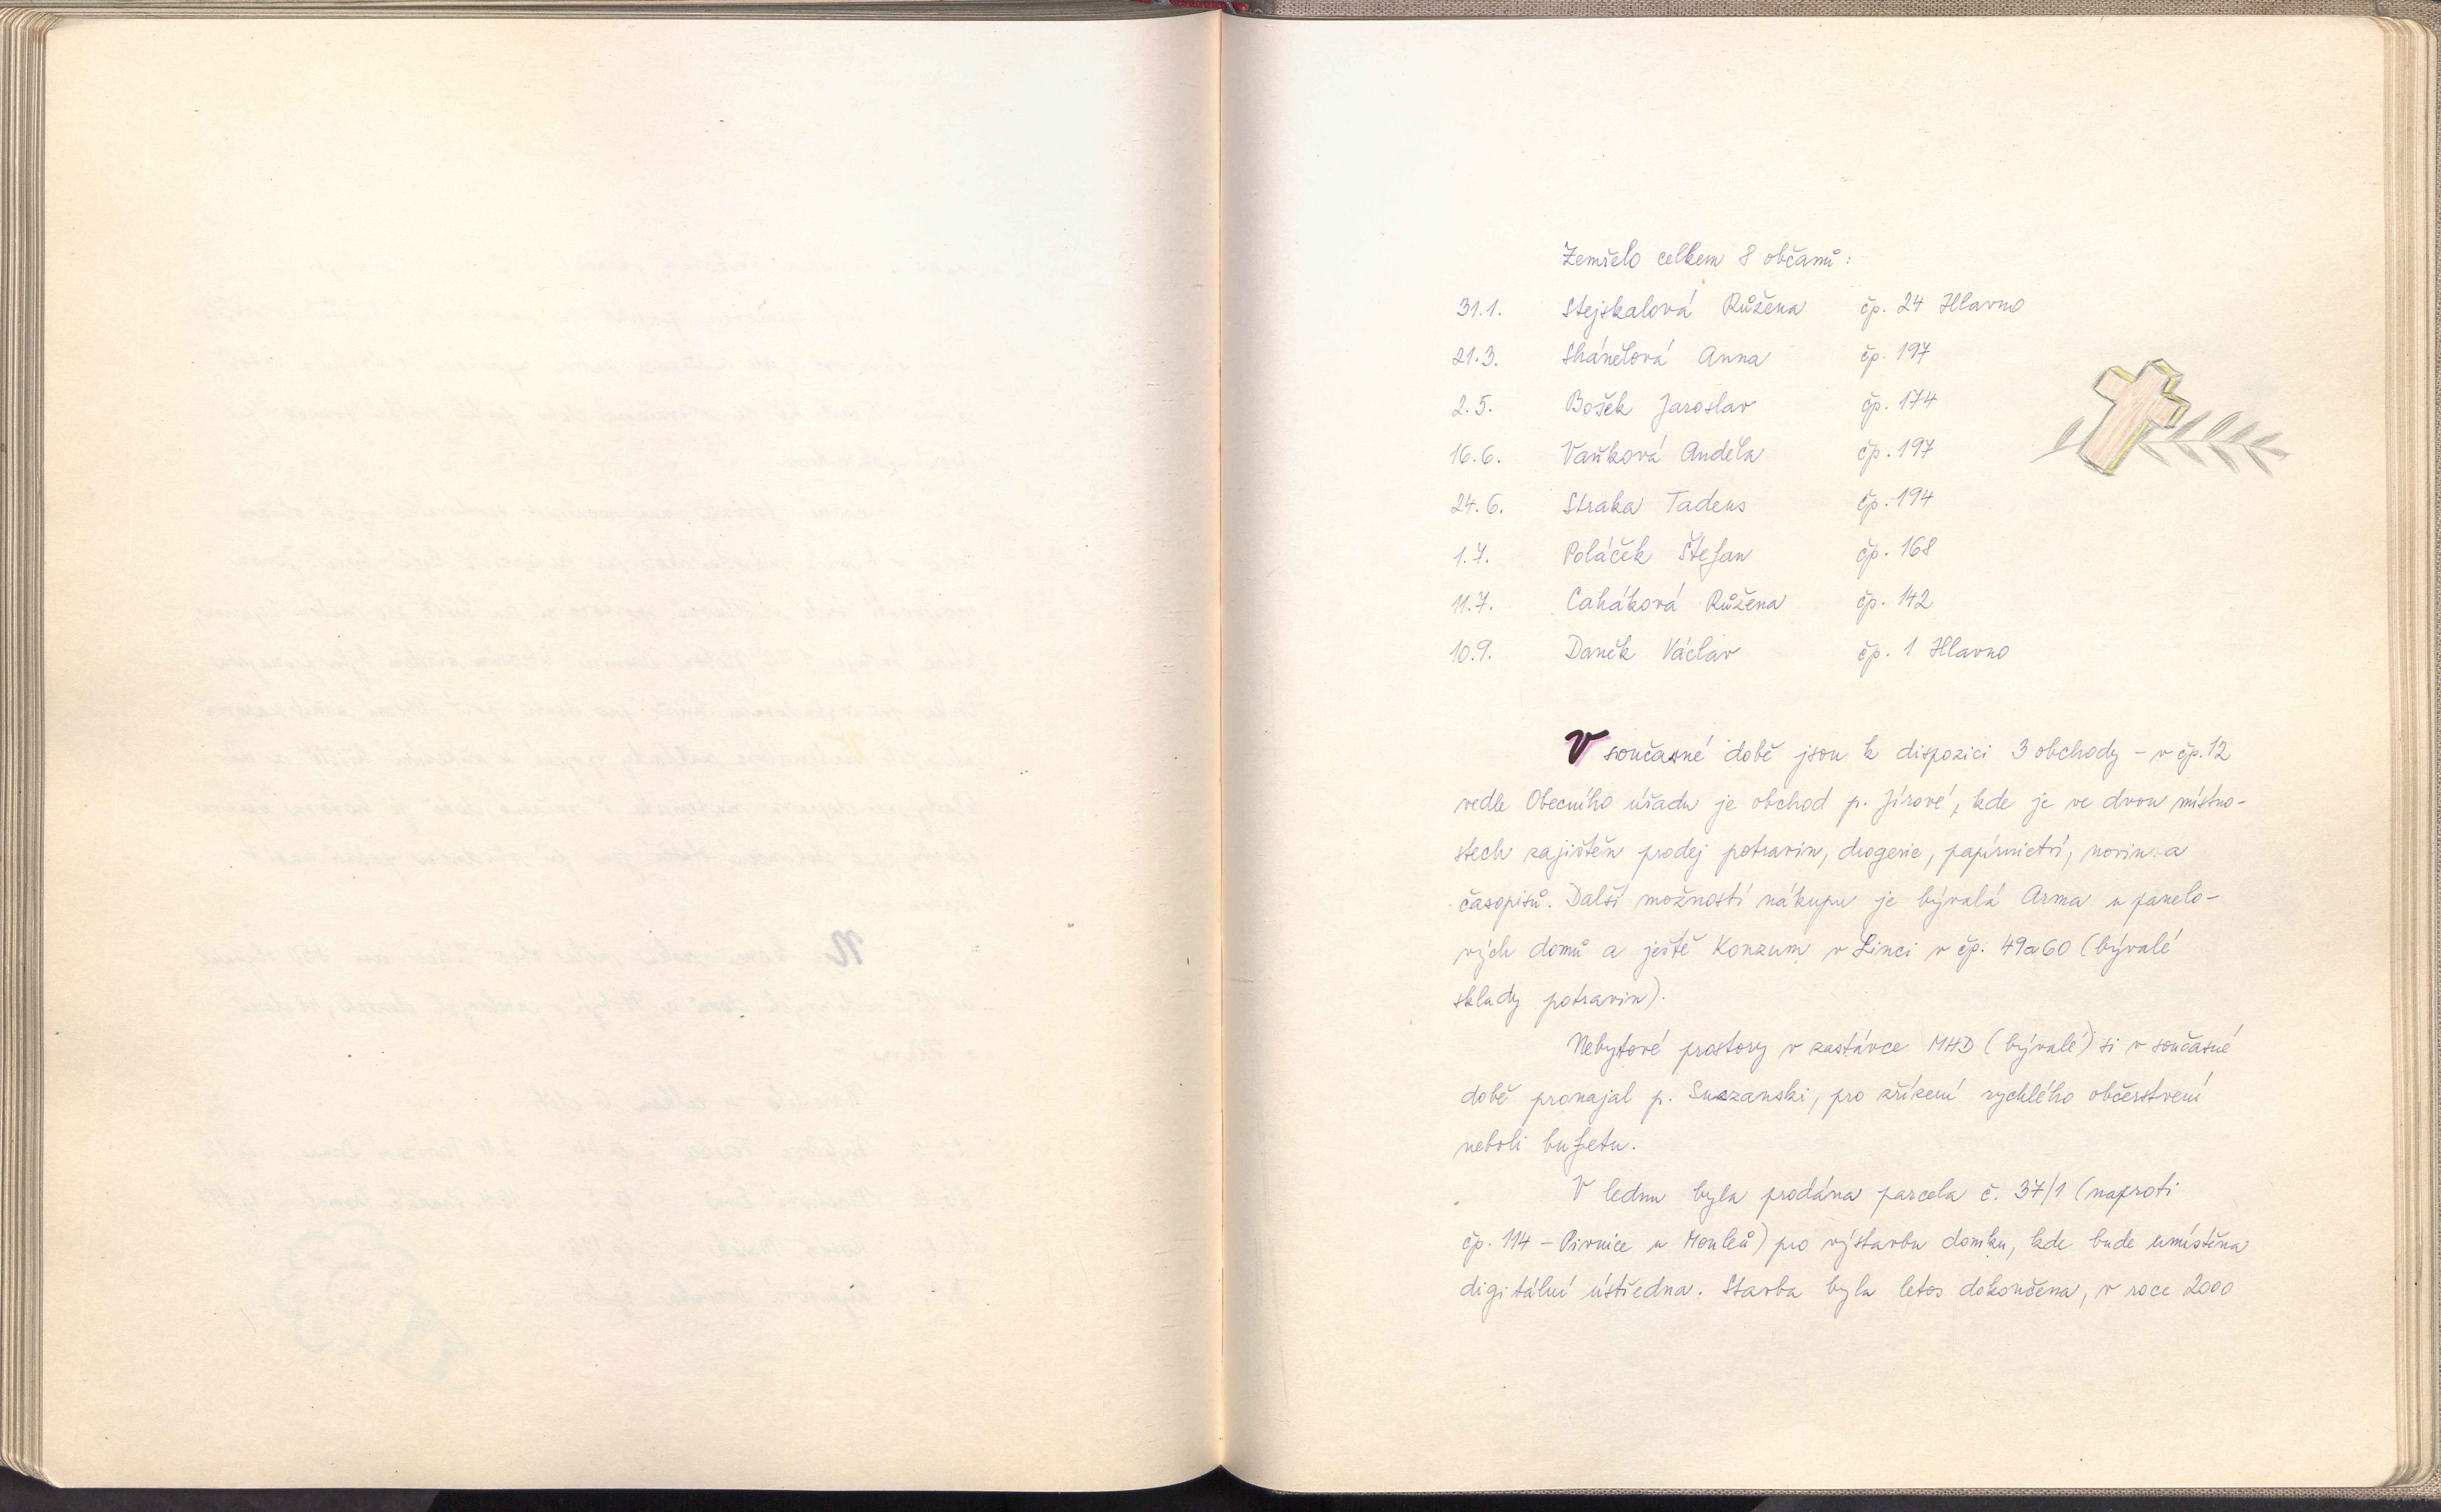 Zemřelo celkem 8 občanů:
31.1. Stejskalová Růžena čp. 24 Hlavno
21.3. Skánělová Anna čp. 197
2.5. Bošek Jaroslav čp. 174
16.6. Vaňková Anděla čp. 197
24.6. Straka Tadeus čp. 194
1.7. Poláček Štefan čp. 168
11.7. Caháková Růžena čp. 142
10.9. Daněk Václav čp. 1 Hlavno
V současné době jsou k dispozici 3 obchody – v čp. 12
vedle Obecního úřadu je obchod p. Jírové, kde je ve dvou místno-
stech zajištěn prodej potravin, drogerie, papírnictví, novin a
časopisů. Další možností nákupu je bývalá Arma u panelo-
vých domů a ještě Konzum v Linci v čp. 49a60 (bývalé
sklady potravin).
Nebytové prostory v zastávce MHD (bývalé) si v současné
době pronajal p. Suszanski, pro zřízení rychlého občerstvení
neboli bufetu.
V lednu byla prodána parcela č. 37/1 (naproti
čp. 114 – Pivnice u Monleů) pro výstavbu domku, kde bude umístěna
digitální ústředna. Stavba byla letos dokončena, v roce 2000